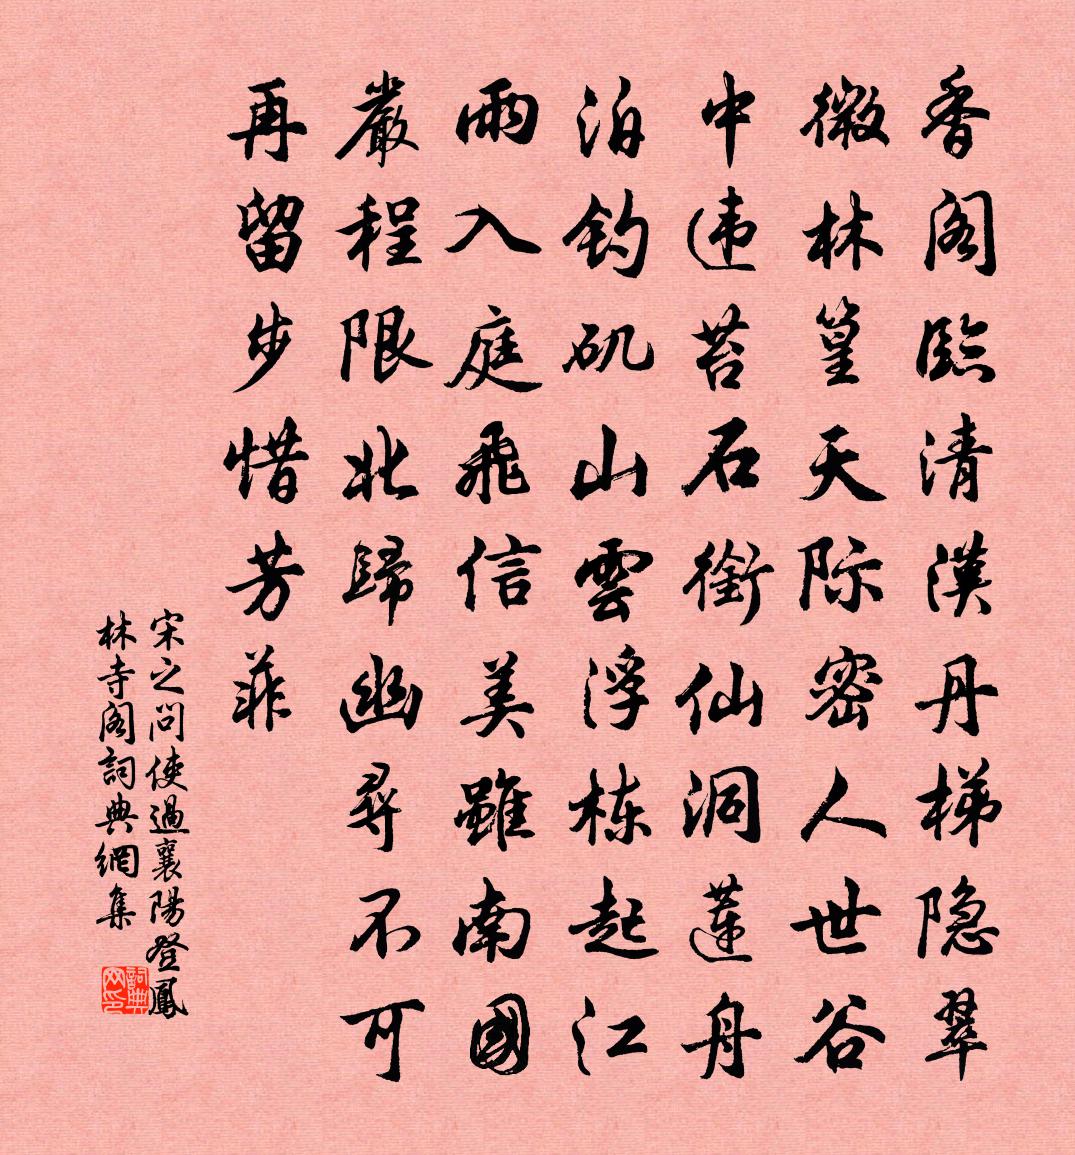 香阁臨清漢丹梯隐翠
微林篁天际密人世谷
中违苔石銜仙洞蓮舟
泊钓矶山雲浮栋起江
雨入庭飛信美雖南國
嚴程限北歸幽尋不可
再留步惜芳菲
宋之问使過襄陽登鳳
林寺阁詞典網集
詞典
网印